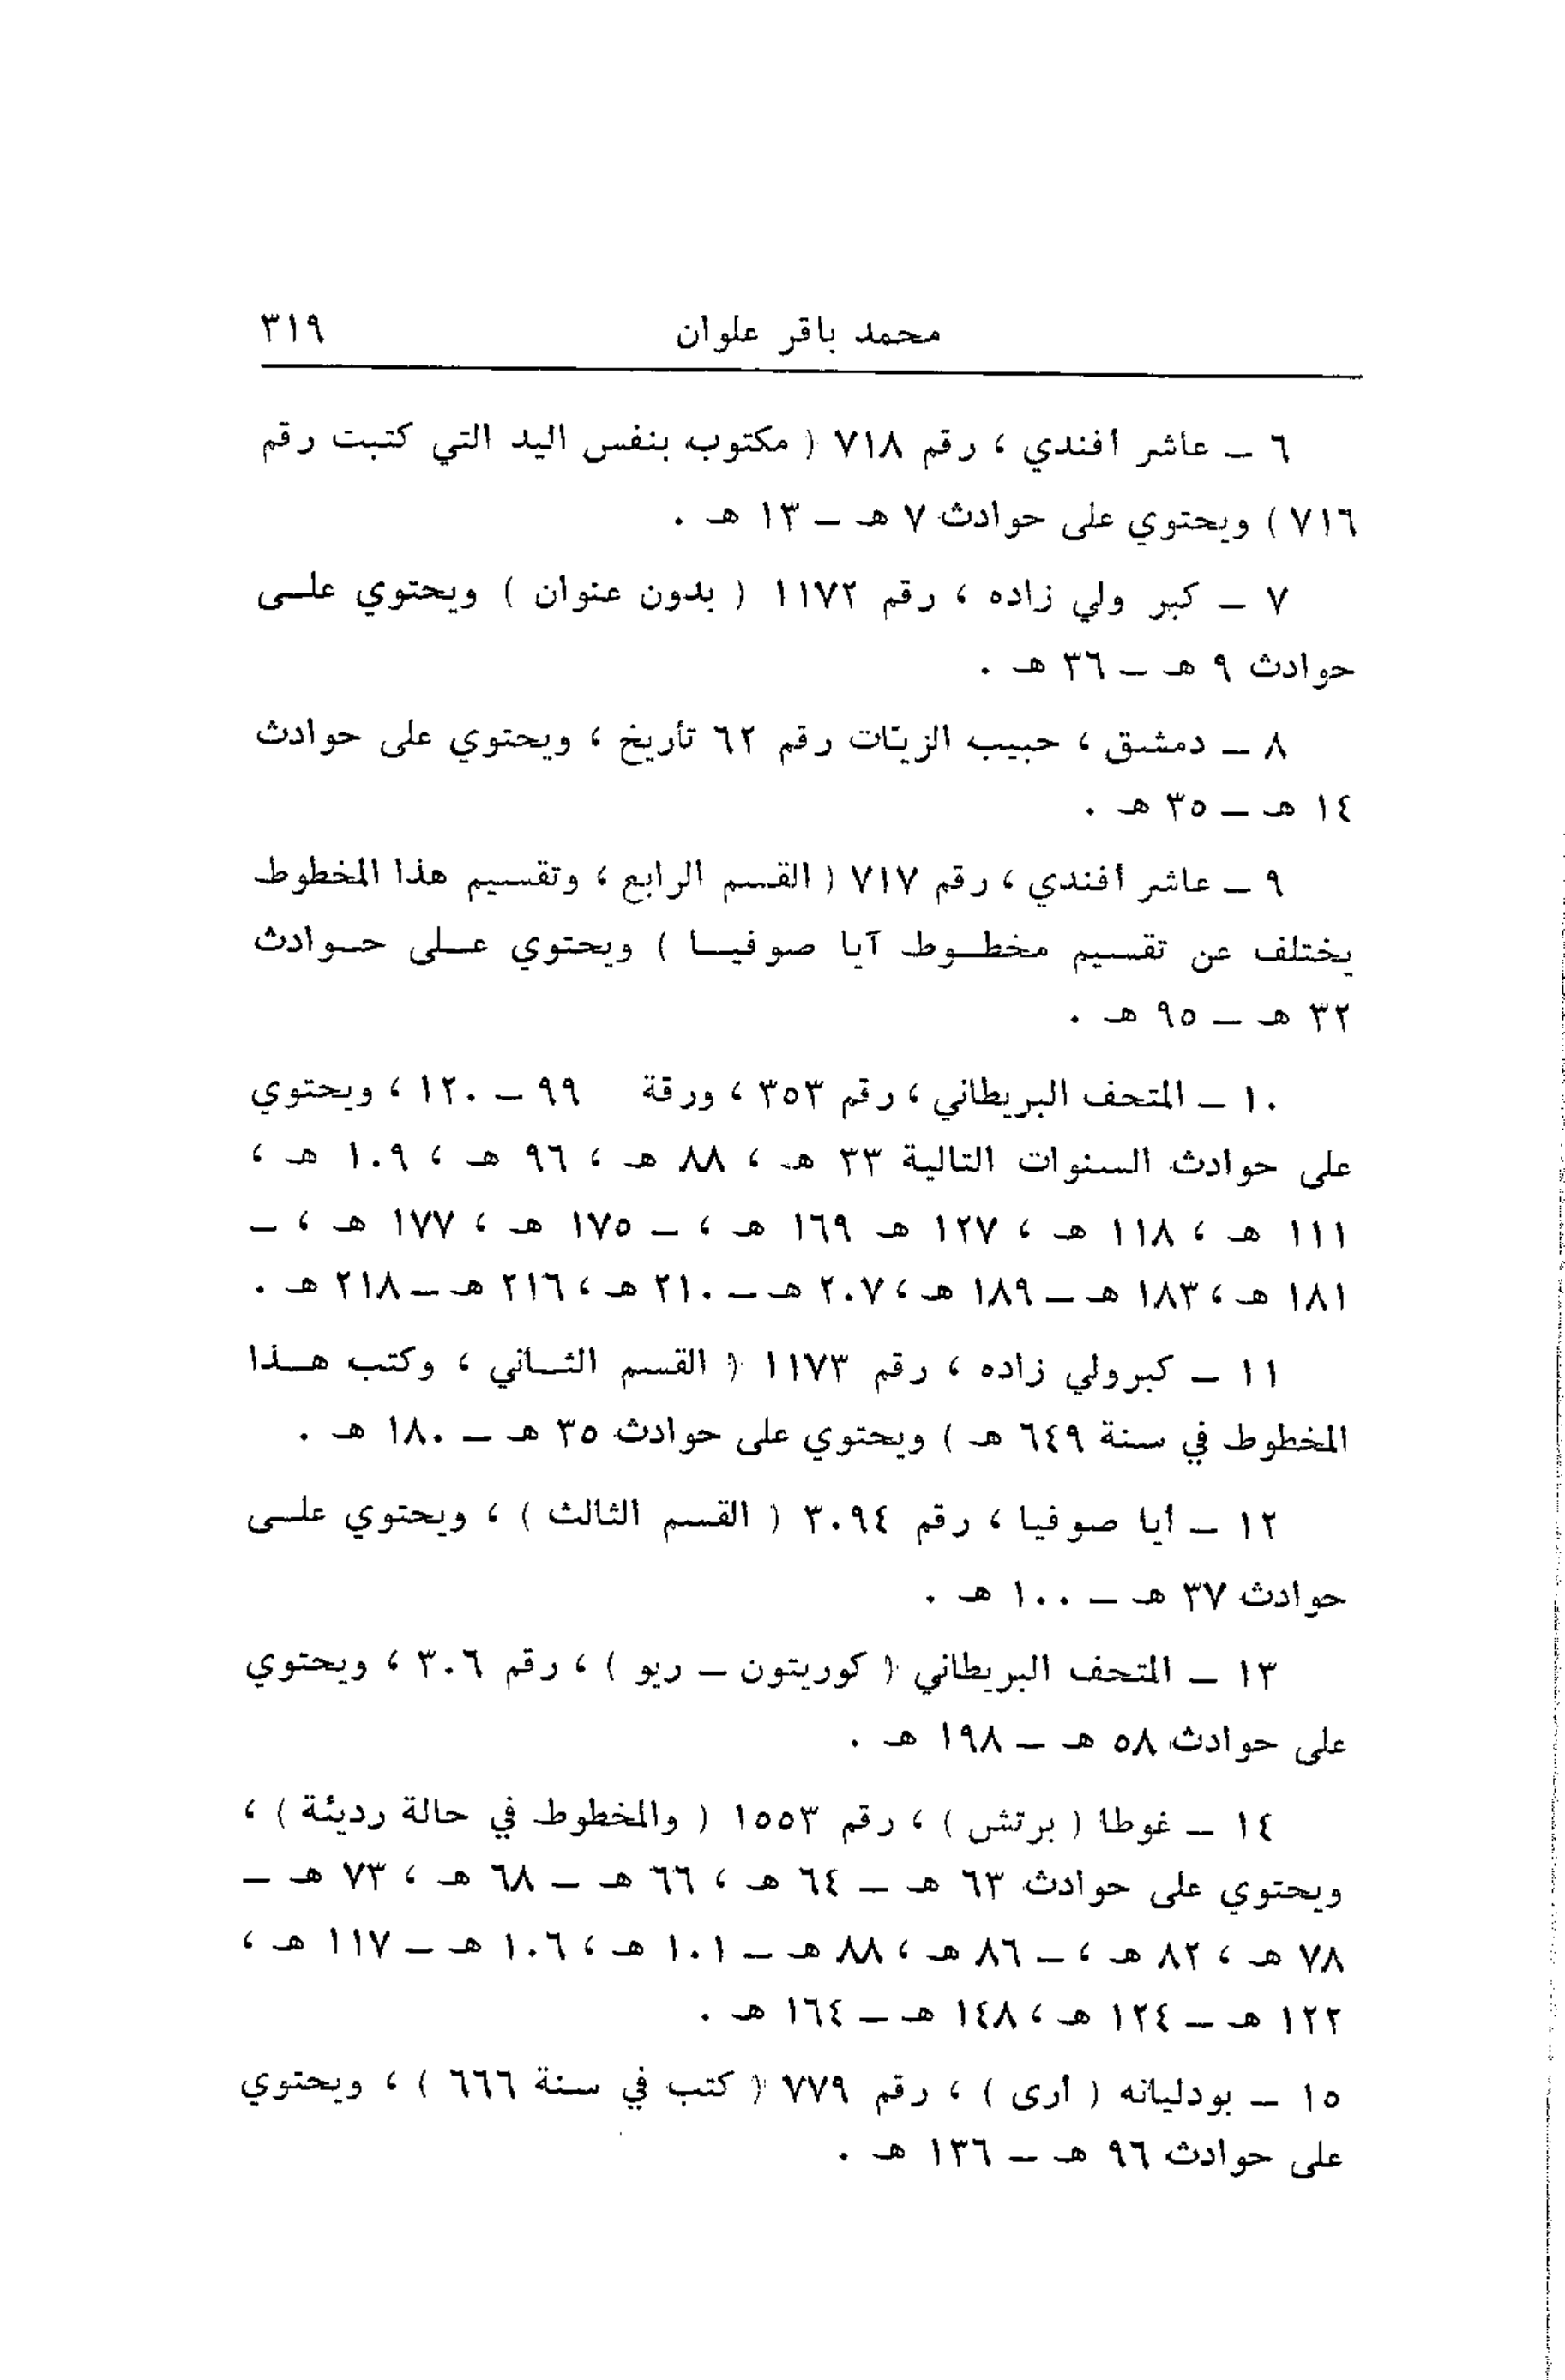 محمد باقر علوان ٣١٩
٦ ــ عاشر أفندي ، رقم ٧١٨ ( مكتوب بنفس اليد التي كتبت رقم
٧١٦ ) ويحتوي على حوادث ٧ هـ ــ ١٣ هـ .
٧ ــ كبر ولي زاده ، رقم ١١٧٢ ( بدون عنوان ) ويحتوي علــى
حوادث ٩ هـ ــ ٣٦ هـ .
٨ ــ دمشق ، حبيب الزيّات رقم ٦٢ تأريخ ، ويحتوي على حوادث
١٤ هـ ــ ٣٥ هـ .
٩ ــ عاشر أفندي ، رقم ٧١٧ ( القسم الرابع ، وتقسيم هذا المخطوط
يختلف عن تقسيم مخطــوط آيا صوفيــا ) ويحتوي عــلى حــوادث
٣٢ هـ ــ ٩٥ هـ .
١٠ ــ المتحف البريطاني ، رقم ٣٥٣ ، ورقة ٩٩ ــ ١٢٠ ، ويحتوي
على حوادث السنوات التالية ٣٣ هـ ، ٨٨ هـ ، ٩٦ هـ ، ١٠٩ هـ ،
١١١ هـ ، ١١٨ هـ ، ١٢٧ هـ ١٦٩ هـ ، ــ ١٧٥ هـ ، ١٧٧ هـ ، ــ
١٨١ هـ ، ١٨٣ هـ ــ ١٨٩ هـ ، ٢٠٧ هـ ــ ٢١٠ هـ ، ٢١٦ هـ ــ ٢١٨ هـ .
١١ ــ كبرولي زاده ، رقم ١١٧٣ ( القسم الثــاني ، وكتب هــذا
المخطوط في سنة ٦٤٩ هـ ) ويحتوي على حوادث ٣٥ هـ ــ ١٨٠ هـ .
١٢ ــ أيا صوفيا ، رقم ٣٠٩٤ ( القسم الثالث ) ، ويحتوي علــى
حوادث ٣٧ هـ ــ ١٠٠ هـ .
١٣ ــ المتحف البريطاني ( كوريتون ــ ريو ) ، رقم ٣٠٦ ، ويحتوي
على حوادث ٥٨ هـ ــ ١٩٨ هـ .
١٤ ــ غوطا ( برتش ) ، رقم ١٥٥٣ ( والمخطوط في حالة رديئة ) ،
ويحتوي على حوادث ٦٣ هـ ــ ٦٤ هـ ، ٦٦ هـ ــ ٦٨ هـ ، ٧٣ هـ ــ
٧٨ هـ ، ٨٢ هـ ، ــ ٨٦ هـ ، ٨٨ هـ ــ ١٠١ هـ ، ١٠٦ هـ ــ ١١٧ هـ ،
١٢٢ هـ ــ ١٢٤ هـ ، ١٤٨ هـ ــ ١٦٤ هـ .
١٥ ــ بودليانه ( أرى ) ، رقم ٧٧٩ ( كتب في سنة ٦٦٦ ) ، ويحتوي
على حوادث ٩٦ هـ ــ ١٣٦ هـ .